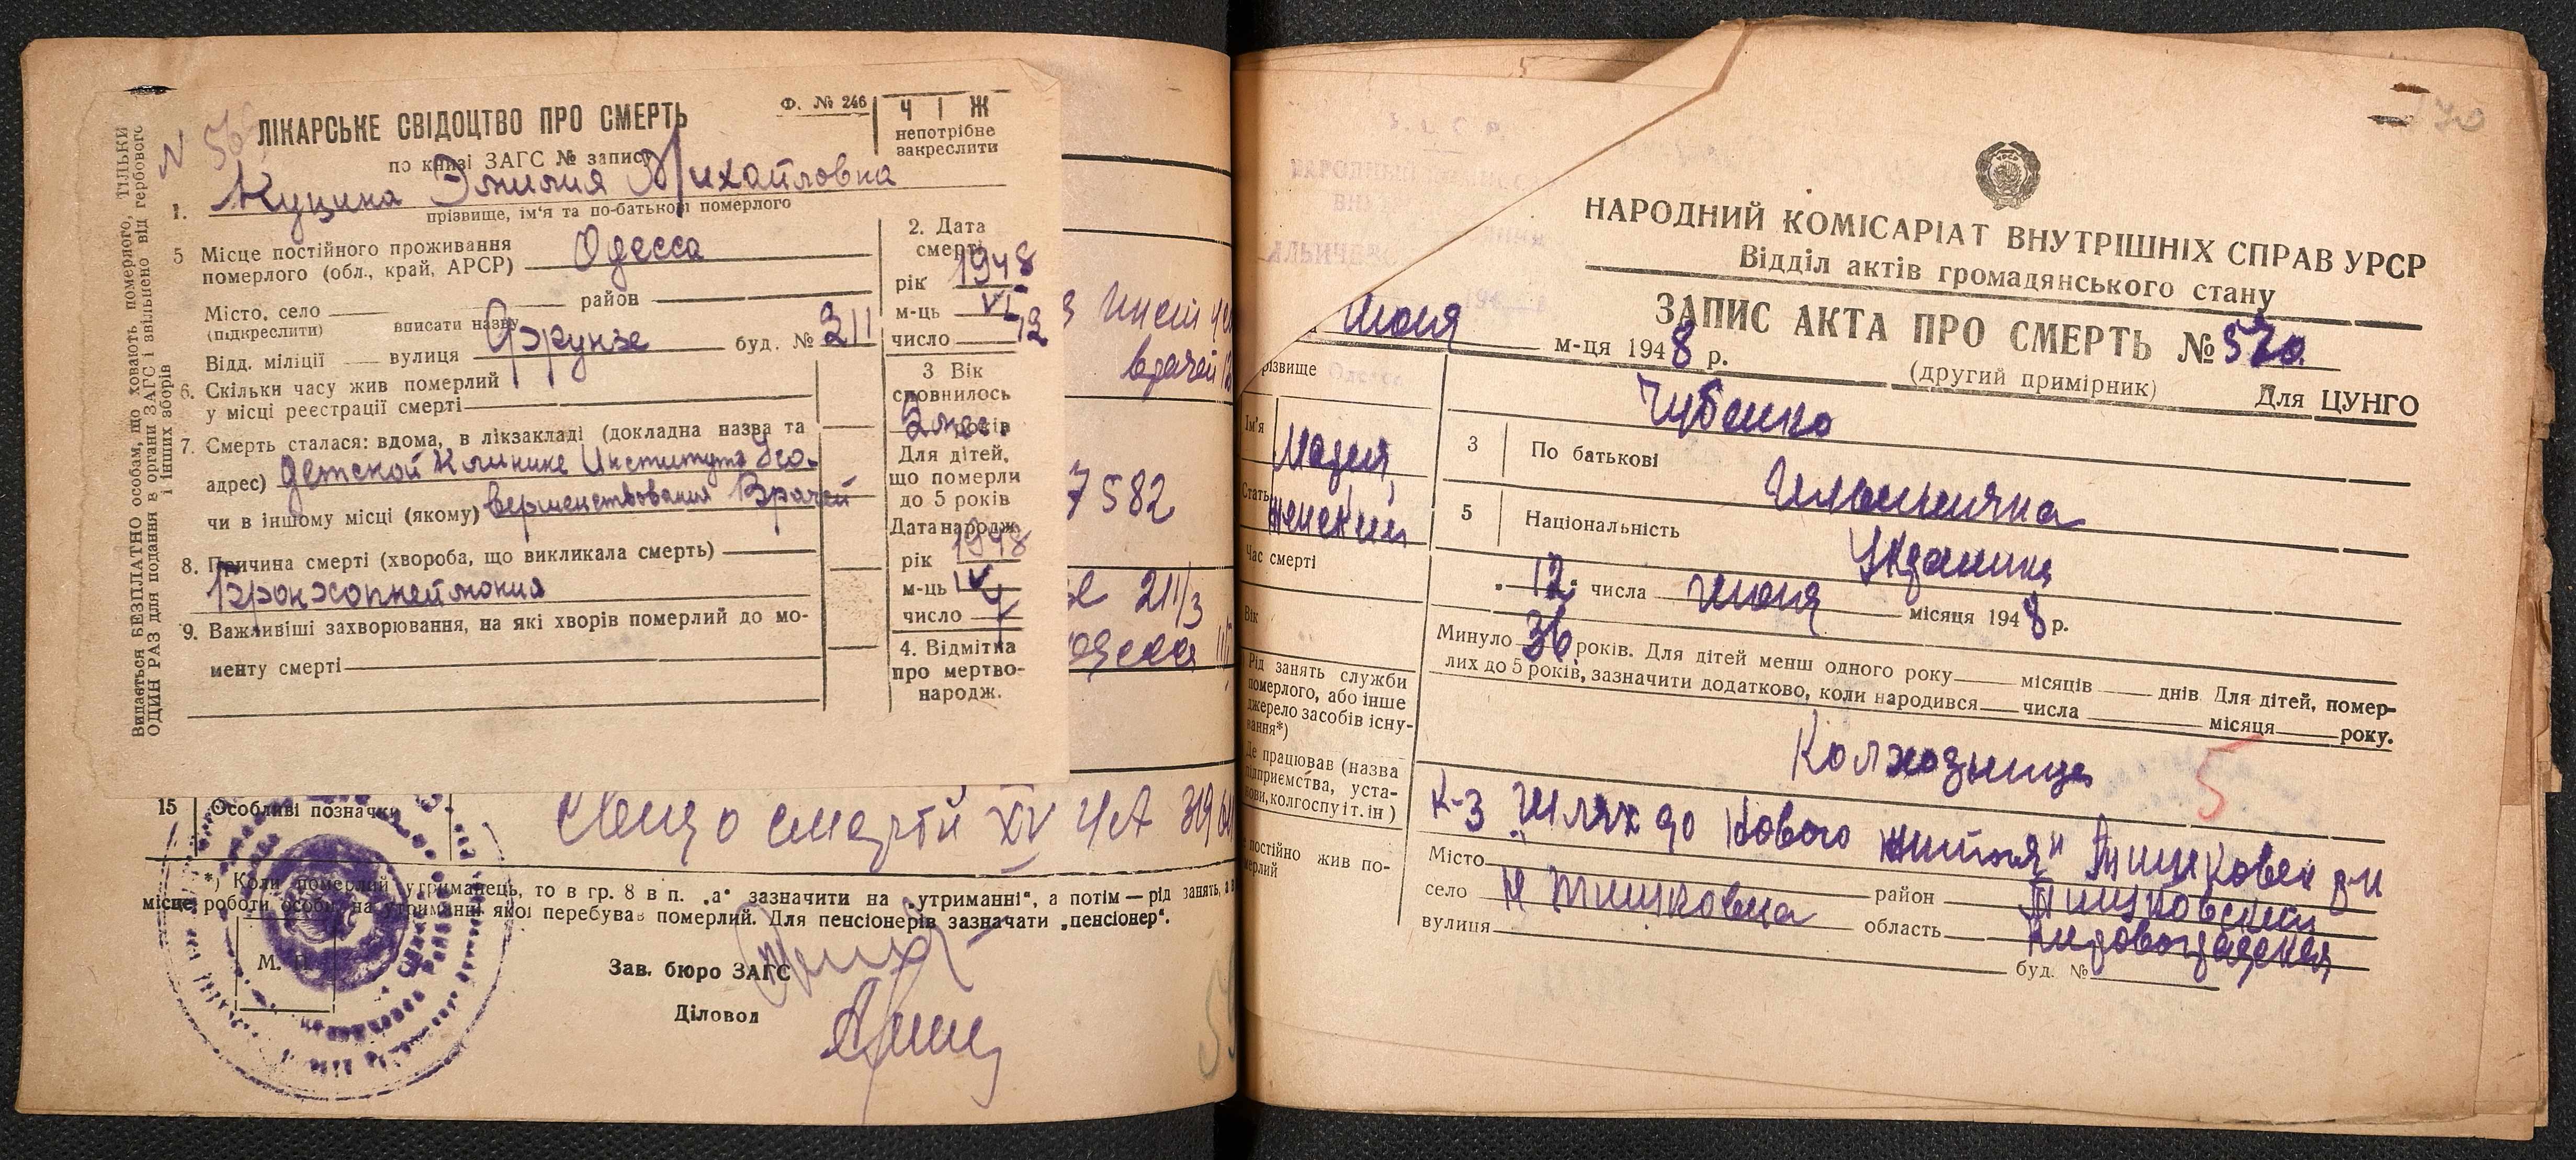 Видається БЕЗПЛАТНО особам, що ховають померлого, ТІЛЬКИ
ОДИН РАЗ для подання в органи ЗАГС і звільнено від гербового
і інших зборів
ЛІКАРСЬКЕ СВІДОЦТВО ПРО СМЕРТЬ
Ф. № 246
Ч І Ж
непотрібне
закреслити
по книзі ЗАГС № запису
1. Куцина Эмилия Михайловна
прізвище, ім'я та по-батькові померлого
5 Місце постійного проживання
померлого (обл., край, АРСР) Одесса
Місто, село район
(підкреслити) вписати назву
Відд. міліції вулиця Фрунзе буд. № 211
6. Скільки часу жив померлий
у місці реєстрації смерті
7. Смерть сталася: вдома, в лікзакладі (докладна назва та
адрес) Детской Клинике Института Усо-
чи в іншому місці (якому) вершенствования Врачей
8. Причина смерті (хвороба, що викликала смерть)
Бронхопнеймония
9. Важливіші захворювання, на які хворів померлий до мо-
менту смерті
2. Дата
смерті
рік 1948
м-ць VI
число 12
3 Вік
сповнилось
2 мес. років
Для дітей,
що померли
до 5 років
Дата народж.
рік 1948
м-ць IV
число
4. Відмітка
про мертво-
народж.
врачей
7582
211/3
15 Особливі позначки
о смерти XV 319
*) Коли померлий утриманець, то в гр. 8 в п. „а“ зазначити на „утриманні“, а потім — рід занять, а в
місце роботи особи, на утриманні якої перебував померлий. Для пенсіонерів зазначати „пенсіонер“.
М. П.
Зав. бюро ЗАГС
Діловод
570
НАРОДНИЙ КОМІСАРІАТ ВНУТРІШНІХ СПРАВ УРСР
Відділ актів громадянського стану
ЗАПИС АКТА ПРО СМЕРТЬ № 570
Июня м-ця 1948 р.
(другий примірник) Для ЦУНГО
різвище Чубенко
Ім'я Мария 3 По батькові Ильинична
Стать женский 5 Національність Украинка
Час смерті „12“ числа Июня місяця 1948 р.
Вік
Минуло 36 років. Для дітей менш одного року місяців днів. Для дітей, помер-
лих до 5 років, зазначити додатково, коли народився числа місяця року.
Рід занять служби
померлого, або інше
джерело засобів існу-
вання*)
Колхозница
5
Де працював (назва
підприємства, уста-
нови, колгоспу і т. ін)
К-з „Шлях до Нового життя“ Тишковск р-н
постійно жив по-
мерлий
Місто
село Н Тишковка район Тишковский
вулиця область Кировоградская
буд. №